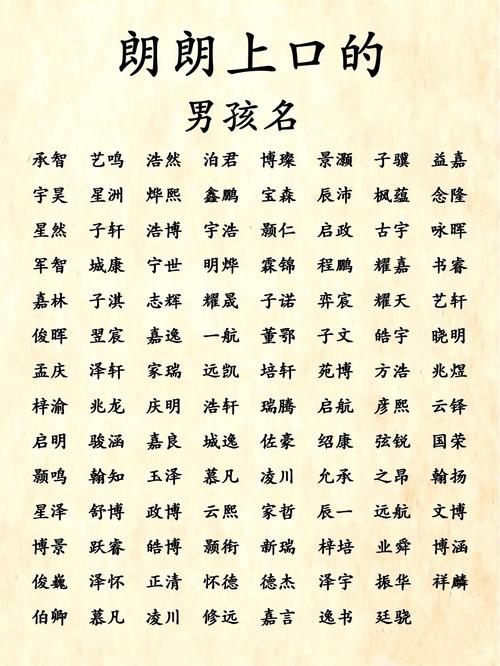 朗朗上口的
男孩名
承智 艺鸣 浩然 泊君 博璨 景灏 子骥 益嘉
宇昊 星洲 烨熙 鑫鹏 宝森 辰沛 枫蕴 念隆
星然 子轩 浩博 宇浩 颢仁 启政 古宇 咏晖
军智 城康 宁世 明烨 霖锦 程鹏 耀嘉 书睿
嘉林 子淇 志辉 耀晟 子诺 弈宸 耀天 艺轩
俊晖 翌宸 嘉逸 一航 董鄂 子文 皓宇 晓明
孟庆 泽轩 家瑞 远凯 培轩 苑博 方浩 兆煜
梓渝 兆龙 庆明 浩轩 瑞腾 启航 彦熙 云铎
启明 骏涵 嘉良 城逸 佐豪 绍康 弦锐 国荣
颢鸣 翰知 玉泽 慕凡 凌川 允承 之昂 翰扬
星泽 舒博 政博 云熙 家哲 辰一 远航 文博
博景 跃睿 皓博 颢衔 新瑞 梓培 业舜 博涵
俊巍 泽怀 正清 怀德 德杰 泽宇 振华 祥麟
伯卿 慕凡 凌川 修远 嘉言 逸书 廷骁